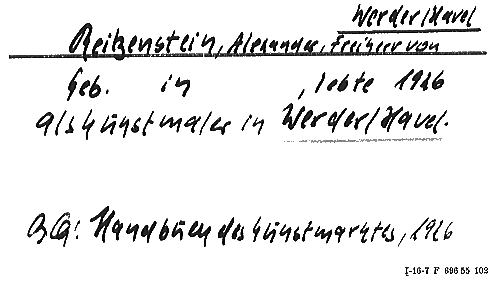 Werder/Havel
Reitzenstein, Alexander, Freiherr von
Geb. in , lebte 1926
als Kunstmaler in Werder/Havel.
BQ: Handbuch des Kunstmarktes, 1926
I-16-7 F 696 55 102